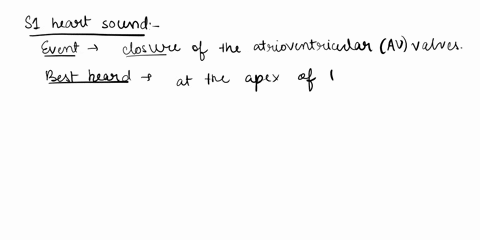 S1 heart sound:-
Event → closure of the atrioventricular (AV) valves.
Best heard → at the apex of